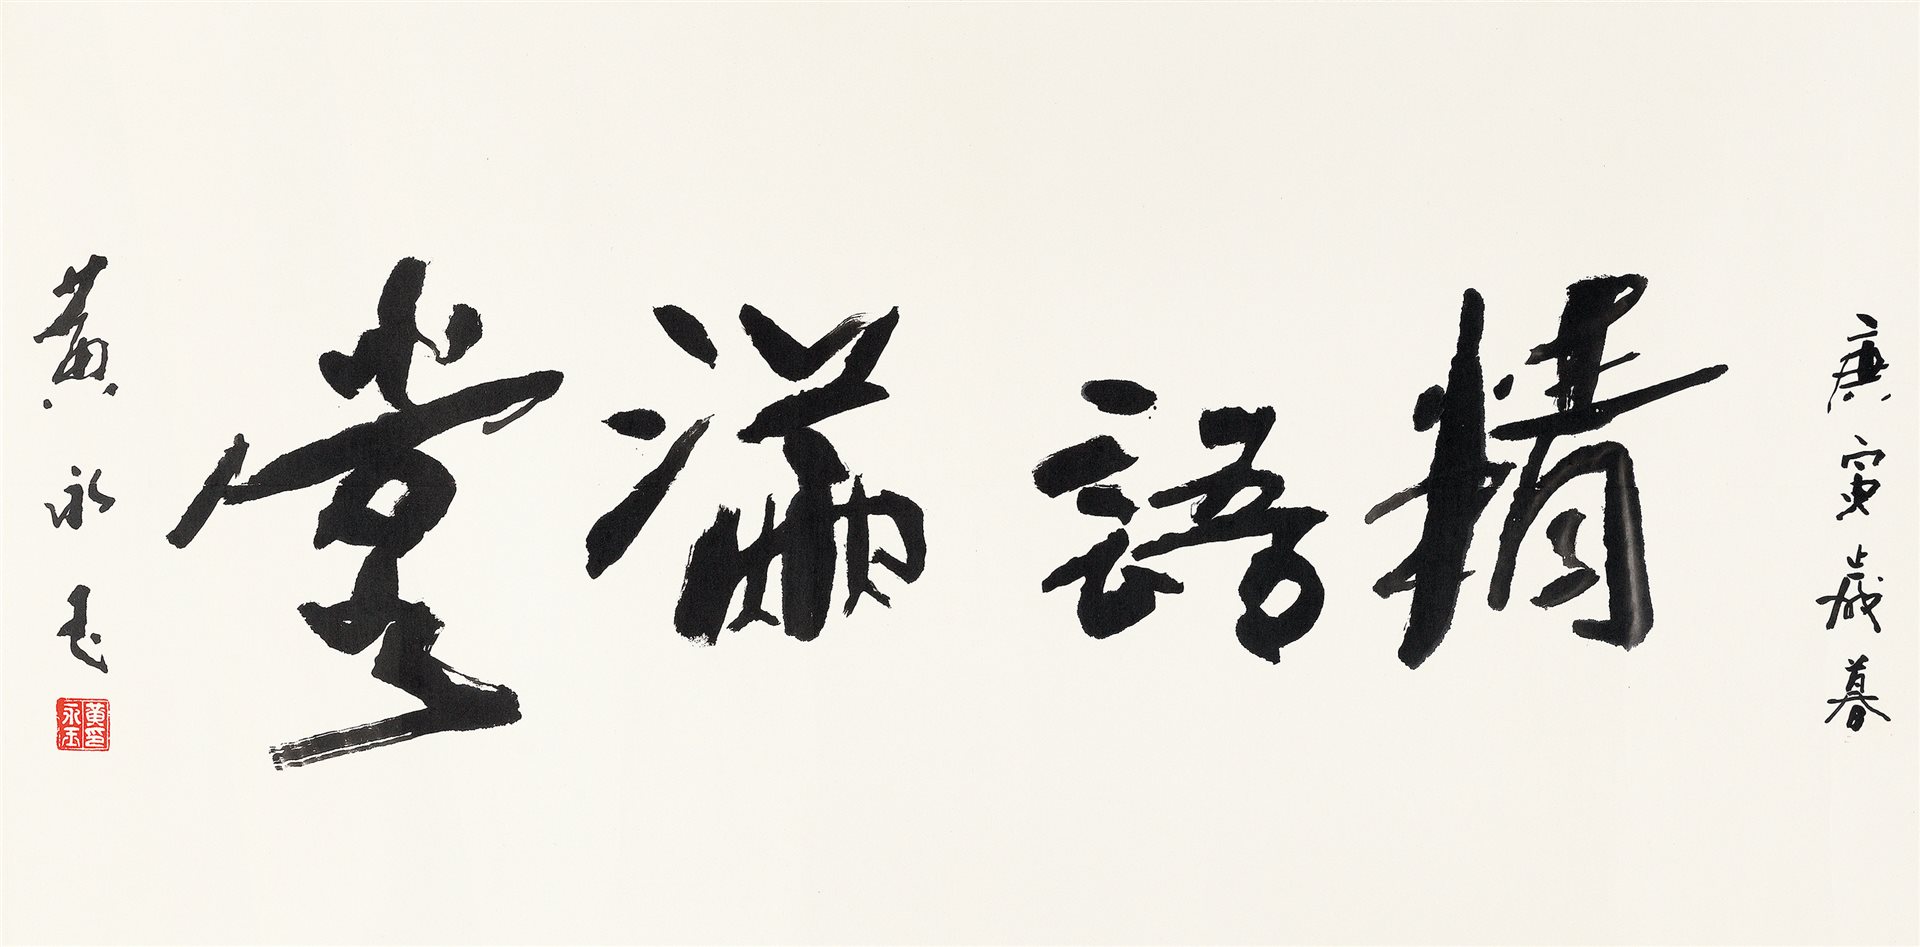 庚寅歲暮
精語滿堂
黃永玉
黃永玉印